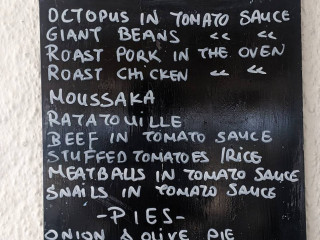 OCTOPUS IN TOMATO SAUCE
GIANT BEANS << <<
ROAST PORK IN THE OVEN
ROAST CHICKEN << <<
MOUSSAKA
RATATOUILLE
BEEF IN TOMATO SAUCE
STUFFED TOMATOES /RICE
MEATBALLS IN TOMATO SAUCE
SNAILS IN TOMATO SAUCE
-PIES-
ONION & OLIVE PIE